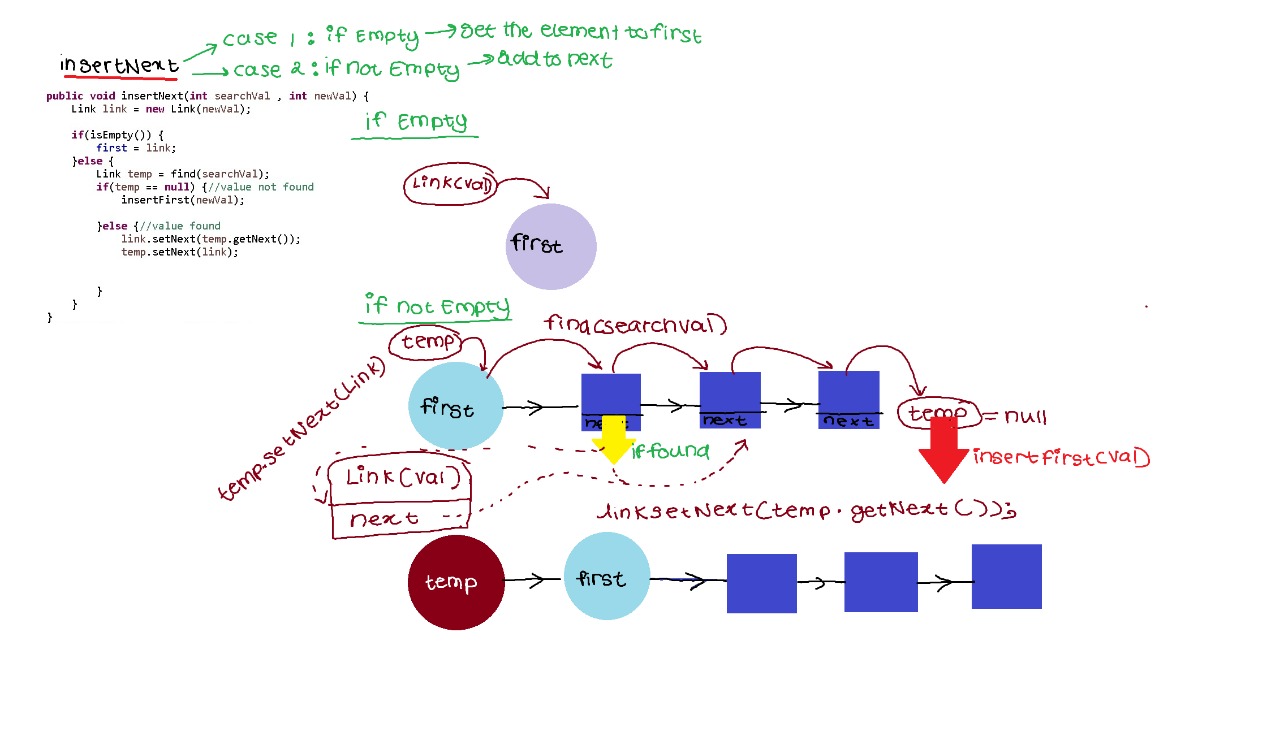 case 1 : if Empty → Set the element to first
insertNext
case 2 : if not Empty → add to next
public void insertNext(int searchVal , int newVal) {
Link link = new Link(newVal);
if Empty
if(isEmpty()) {
first = link;
}else {
Link temp = find(searchVal);
if(temp == null) {//value not found
insertFirst(newVal);
}else {//value found
link.setNext(temp.getNext());
temp.setNext(link);
}
}
}
Link(val)
first
if not Empty
find(searchval)
temp
temp.setNext(Link)
first
next
next
temp = null
if found
insertfirst(val)
Link(val)
next
linksetNext(temp.getNext());
temp
first